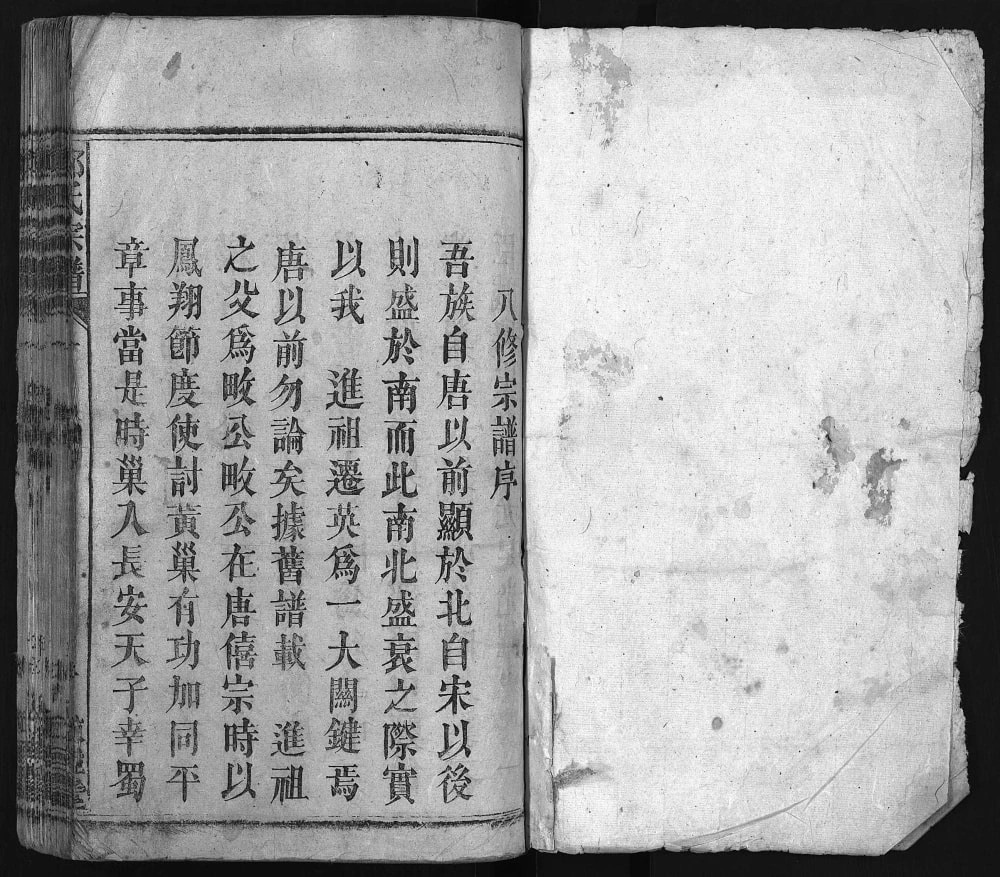 八修宗譜序
吾族自唐以前顯於北自宋以後
則盛於南而此南北盛衰之際實
以我　進祖遷英爲一大關鍵焉
唐以前勿論矣據舊譜載　進祖
之父爲畋公畋公在唐僖宗時以
鳳翔節度使討黃巢有功加同平
章事當是時巢入長安天子幸蜀
氏宗譜